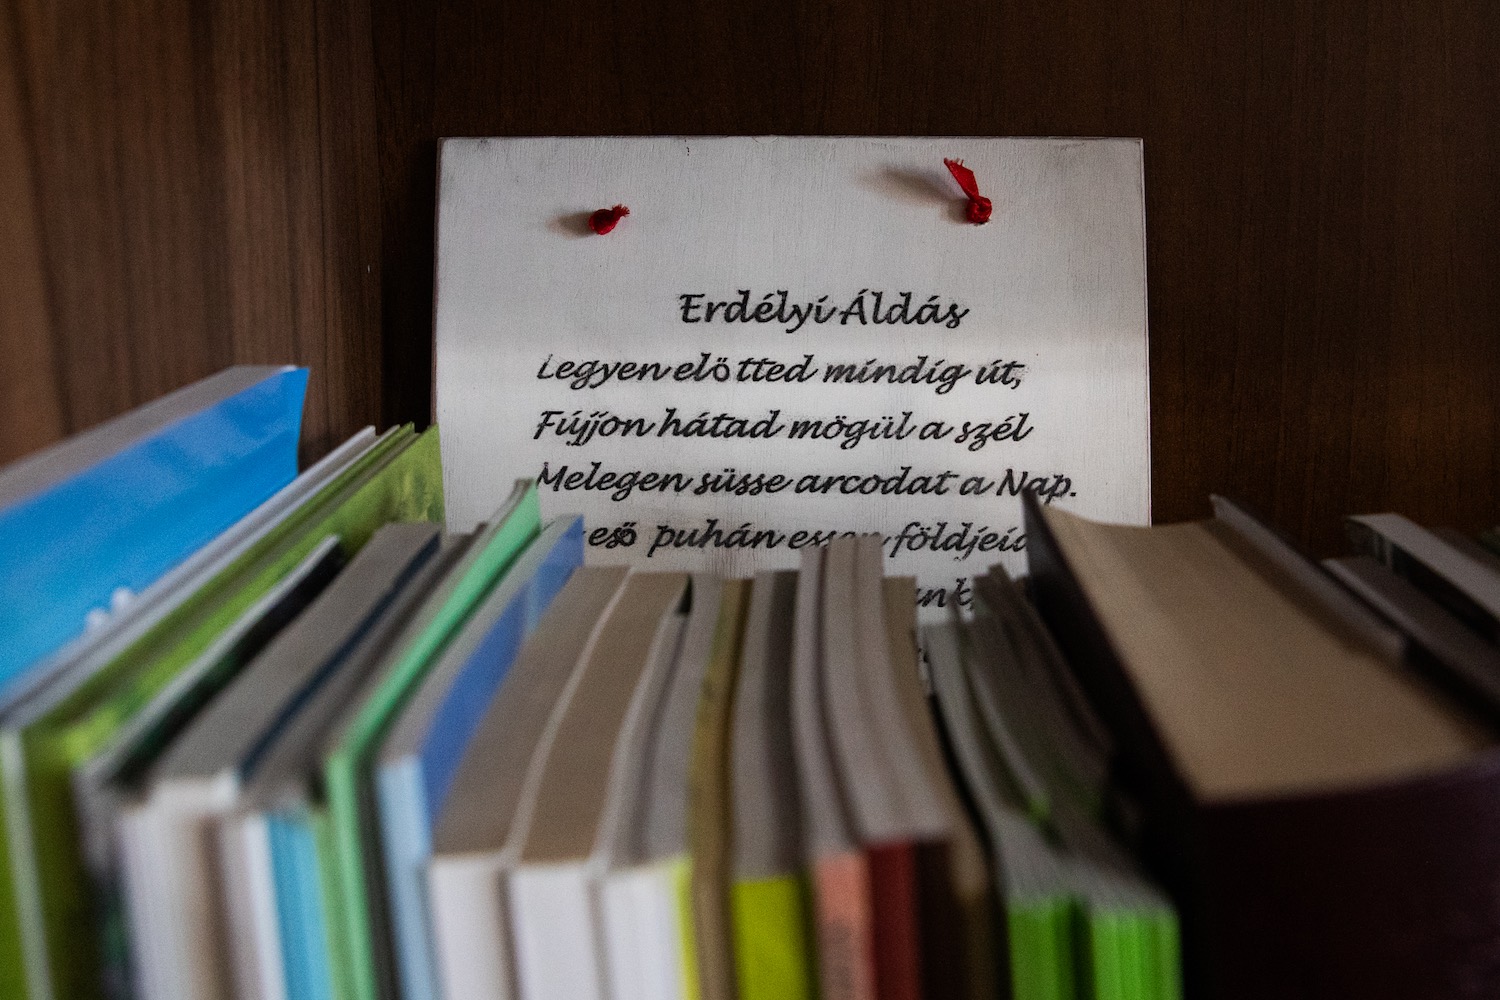 Erdélyi Áldás
Legyen előtted mindig út,
Fújjon hátad mögül a szél
Melegen süsse arcodat a Nap.
eső puhán essen földjei